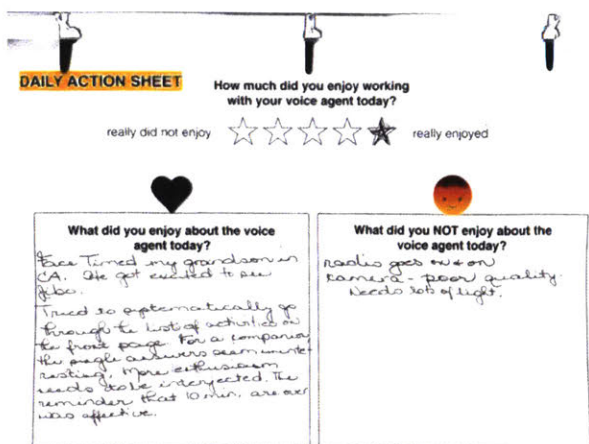 DAILY ACTION SHEET
How much did you enjoy working
with your voice agent today?
really did not enjoy
really enjoyed
What did you enjoy about the voice
agent today?
Face Timed my grandson in
CA. He got excited to see
Jibo.
Tried to systematically go
through the List of activities on
the front page. For a companion
the single answers seem uninte-
resting. More enthusiasm
needs to be interjected. The
reminder that 10 min. are over
was effective.
What did you NOT enjoy about the
voice agent today?
radio goes on & on
camera - poor quality.
Needs lots of light.